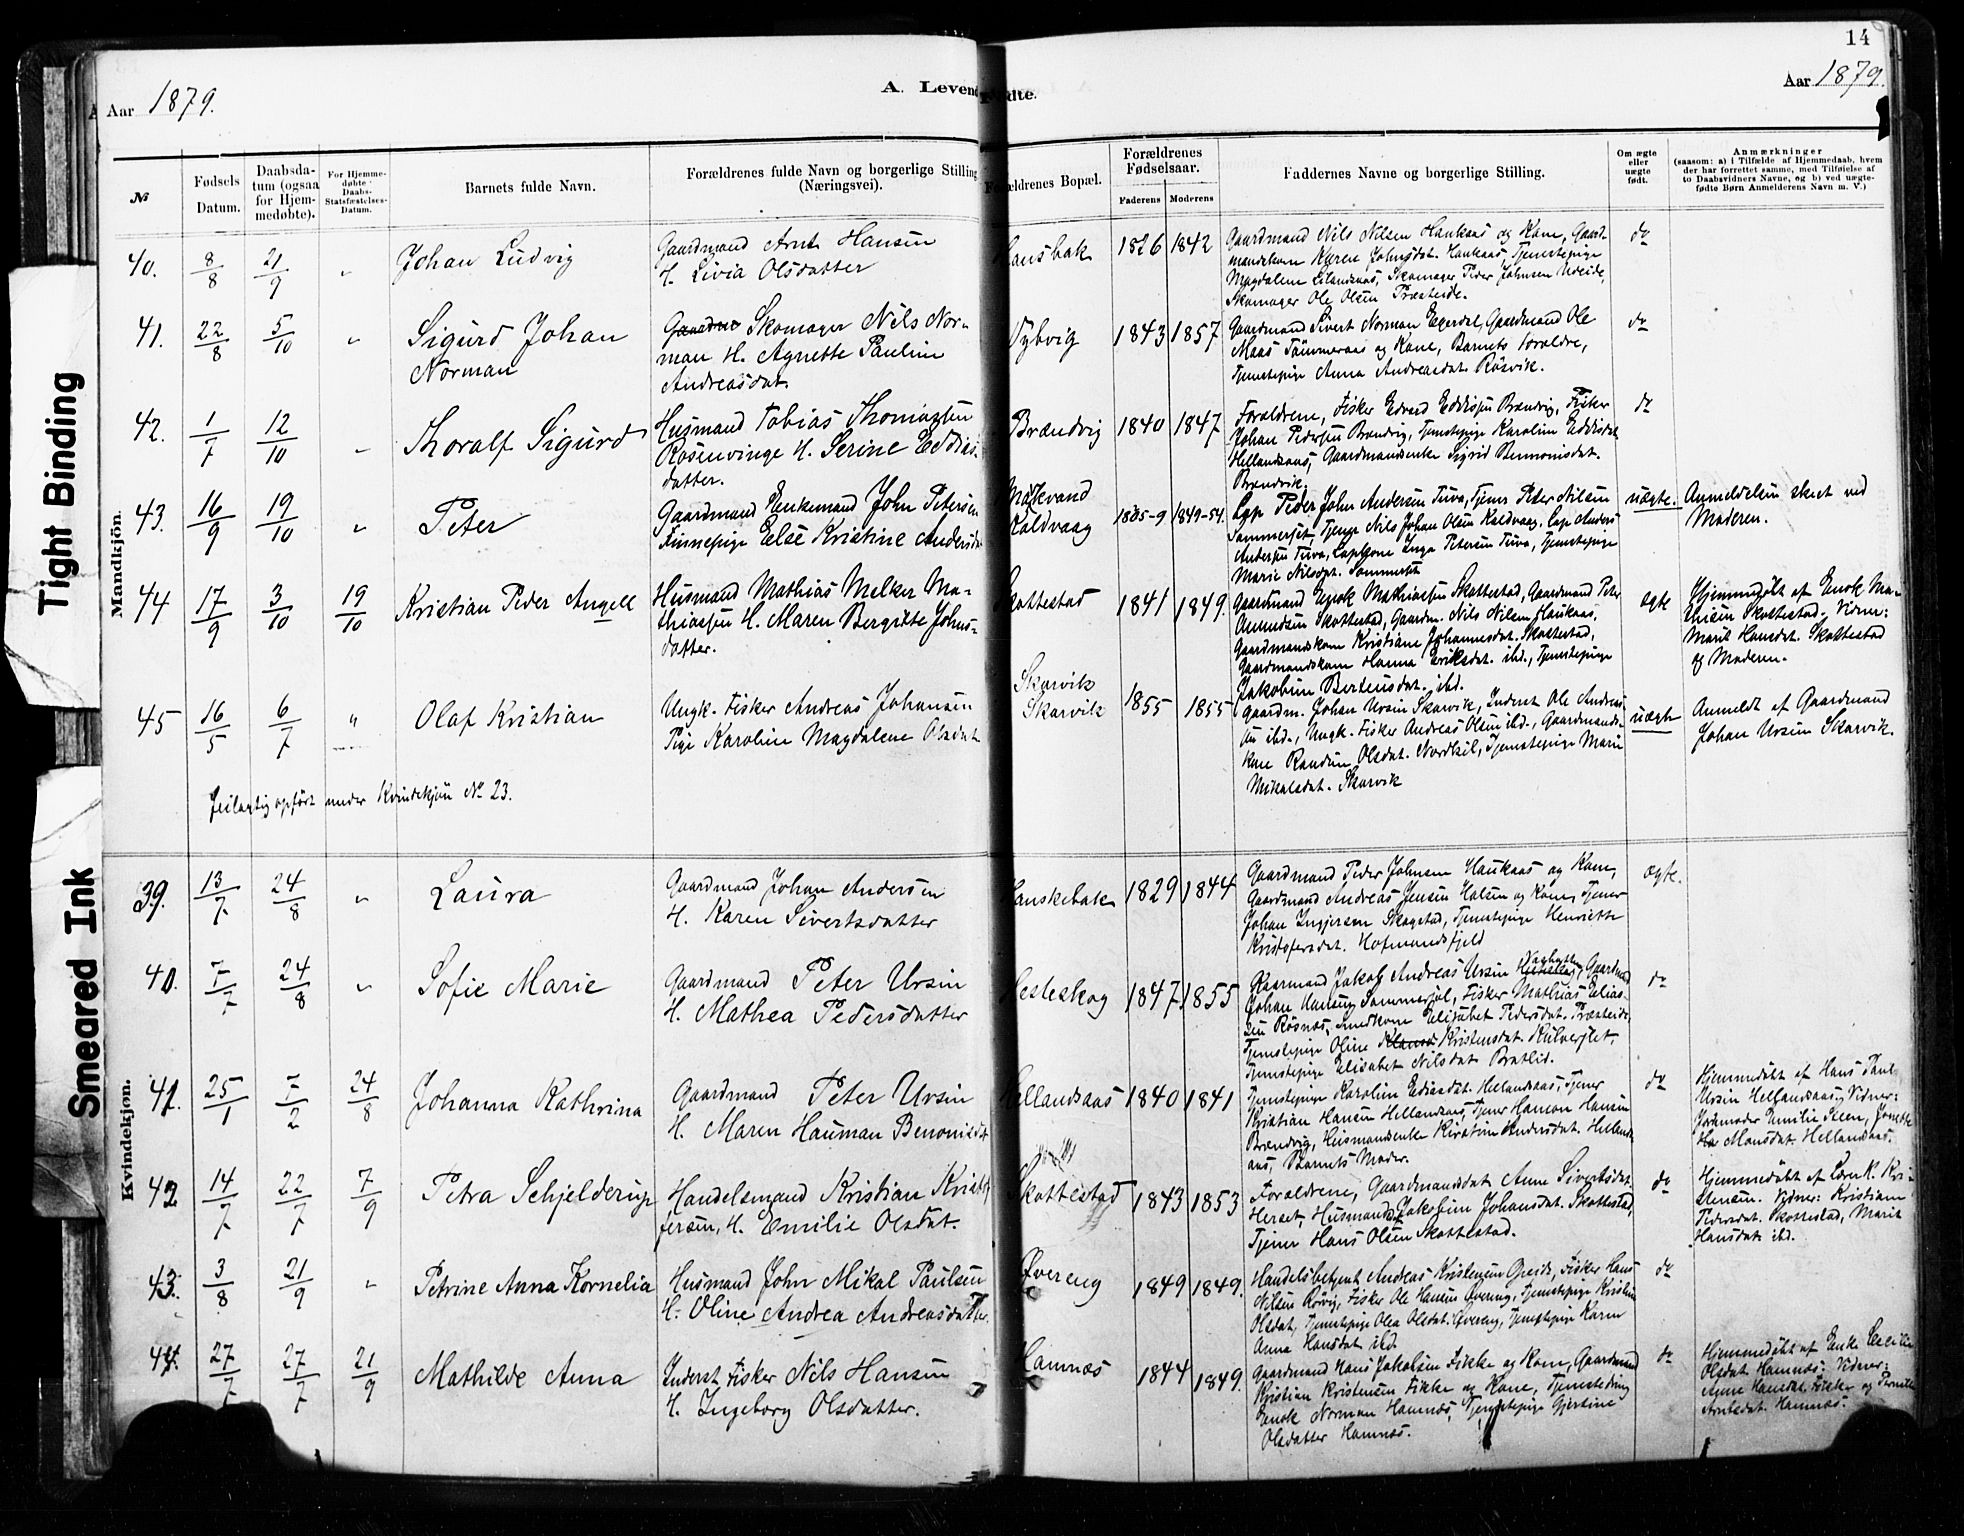 14
Aar 1879.
A. Levendefødte.
Aar 1879.
Tight Binding
Smeared Ink
Mandkjön.
Kvindekjøn.
№
Fødsels Datum.
Daabsdatum (ogsaa for Hjemmedøbte).
For Hjemmedøbte Daabs-Statsfæstelses-Datum.
Barnets fulde Navn.
Forældrenes fulde Navn og borgerlige Stilling (Næringsvei).
Forældrenes Bopæl.
Forældrenes Fødselsaar.
Faderens
Moderens
Faddernes Navne og borgerlige Stilling.
Om ægte eller uægte født.
Anmærkninger
(saasom: a) i Tilfælde af Hjemmedaab, hvem der har forrettet samme, med Tilføielse af to Daabsvidners Navne, og b) ved uægtefødte Børn Anmelderens Navn m. V.)
40. 8/8 21/9 " Johan Ludvig
Gaardmand Arnt Hansen
H. Livia Olsdatter
1826 1842
Gaardmand Nils Nilsen Haukaas og Kone, Gaard-
mandskone Karen Johnsdat. Haukaas, Tjenestepige
Magdalene Eilandsaas, Skomager Peder Johnsen Udeide,
Skomager Ole Olsen Præsteide.
do
41. 22/8 5/10 " Sigurd Johan
Norman
Gaardm Skomager Nils Nor-
man H. Agnette Pauline
Andreasdat.
Vybvig
1843 1857
Gaardmand Sivert Norman Egerdal, Gaardmand Ole
Maas Tømmeraas og Kone, Barnets Forældre,
Tjenestepige Anna Andreasdat. Røsvik.
do
42. 1/7 12/10 " Thoralf Sigurd
Husmand Tobias Thomassen
Rosenvinge H. Serine Eddias-
datter.
Brændvig
1840 1847
Forældrene, Fisker Edvard Eddissen Brændvig, Fisker
Johan Pedersen Brændvig, Tjenestepige Karoline Eddisdat.
Hellandsaas, Gaardmandsenke Sigrid Bennonisdat.
Brændvik.
do
43. 16/9 19/10 " Peter
Gaardmand Enkemand John Petersen
Finnepige Else Kristine Andersdat
Mørkvand
Kaldvaag
1835-9 1849-54.
Lap Peder John Andersen Tuva, Tjener Peter Nilsen
Sommerset, Tjener Nils Johan Olsen Kaldvaag, Lap Anders
Andersen Tuva, Lapkone Inga Petersen Tuva, Tjenestepige
Marie Nilsdat. Sommerset
uægte.
Anmeldelsen skeet ved
Moderen.
44 17/9 3/10 19/10 Kristian Peder Angell
Husmand Mathias Melker Ma-
thiassen H. Maren Bergitte Johns-
datter.
Skottestad
1841 1849.
Gaardmand Enok Mathiassen Skottestad, Gaardmand Peter
Amundsen Skottestad, Gaardm. Nils Nilsen Haukaas,
Gaardmandskone Kristiane Johannesdat. Skottestad,
Gaardmandskone Hanna Eriksdat. ibd., Tjenestepige
Jakobine Berteusdat. ibd.
ægte
Hjemmedøbt af Enok Ma-
thisen Skottestad. Vidner:
Marit Hansdat. Skottestad
og Moderen.
45 16/5 6/7 " Olaf Kristian
Ungk. Fisker Andreas Johansen
Pige Karoline Magdalene Olsdat
Skarvik
Skarvik
1855 1855
Gaardm. Johan Ursin Skarvik, Inderst Ole Andreas-
sen ibd., Ungk. Fisker Andreas Olsen ibd., Gaardmands-
kone Randine Olsdat. Nordkil, Tjenestepige Marie
Mikalsdat. Skarvik
uægte
Anmeldt af Gaardmand
Johan Ursin Skarvik.
feilagtig opført under Kvindekjøn No 23.
39. 13/7 24/8 " Laura
Gaardmand Johan Andersen
H. Karen Sivertsdatter
Hanskebak
1829 1844
Gaardmand Peder Johnsen Haukaas og Kone,
Gaardmand Andreas Jensen Halsen og Kone, Tjener
Johan Ingjersen Skogstad, Tjenestepige Henriette
Kristofersdat. Hofmandsfjeld
ægte.
40. 7/7 24/8 " Sofie Marie
Gaardmand Peter Ursin
H. Mathea Pedersdatter
Hesteskog
1847 1855
Kaarmand Jakob Andreas Ursin Gaardmand
Johan Hansen Sommersel, Fisker Mathias Elias-
sen Røsnes, Smedkone Elisabet Pedersdat. Præsteide,
Tjenestepige Oline Kristensdat. Kulverslet,
Tjenestepige Elisabet Nilsdat Bratlid.
do
41. 25/1 7/2 24/8 Johanna Kathrina
Gaardmand Peter Ursin
H. Maren Hauman Benonisdat
Hellandsaas
1840 1841
Tjenestepige Karoline Ediasdat. Hellandsaas, Tjener
Kristian Hansen Hellandsaas, Tjener Hanson Hansen
Brændvig, Husmandsenke Kirstine Andersdat. Hellands-
aas, Barnets Moder.
do
Hjemmedøbt af Hans Paul
Ursin Hellandsaas, Vidner:
Jordmoder Emilie Steen,
Mansdat Hellandsaas.
42 14/7 22/7 7/9 Petra Schjelderup
Handelsmand Kristian Kristof-
fersen, H. Emilie Olsdat.
Skottestad
1843 1853
Forældrene, Gaardmandsdat Anne Sivertsdat.
Herset, Husmands Jakobine Johansdat. Skottestad,
Tjener Hans Olsen Skottestad.
do
Hjemmedøbt af Lærer K. Kri-
stensen. Vidner: Kristiane
Pedersdat. Skottestad, Marit
Hansdat. ibd.
43. 3/8 21/9 " Petrine Anna Kornelia
Husmand John Mikal Paulsen
H. Oline Andrea Andreasdatter.
Øvereng
1849 1849.
Handelsbetjent Andreas Kristensen Gjeide, Fisker Hans
Nilsen Rørvig, Fisker Ole Hansen Øvereng, Tjenestepige Kristine
Olsdat, Tjenestepige Olea Olsdat. Øvereng, Tjenestepige Karen
Anna Hansdat ibd.
do
44. 27/7 27/7 21/9 Mathilde Anna
Inderst Fisker Nils Hansen
H. Ingeborg Olsdatter.
Hamnæs
1844 1849.
Gaardmand Hans Jakobsen Fikke og Kone, Gaardmand
Kristian Kristensen Fikke og Kone, Tjenestedreng
Enok Norman Hamnæs, Tjenestepige Gjertine
Olsdatter Hamnæs.
do
Hjemmedøbt af Enke Cecilie
Olsdat Hamnæs. Vidner:
Anne Hansdat. Fikke og Pernille
Arntsdat. Hamnæs.